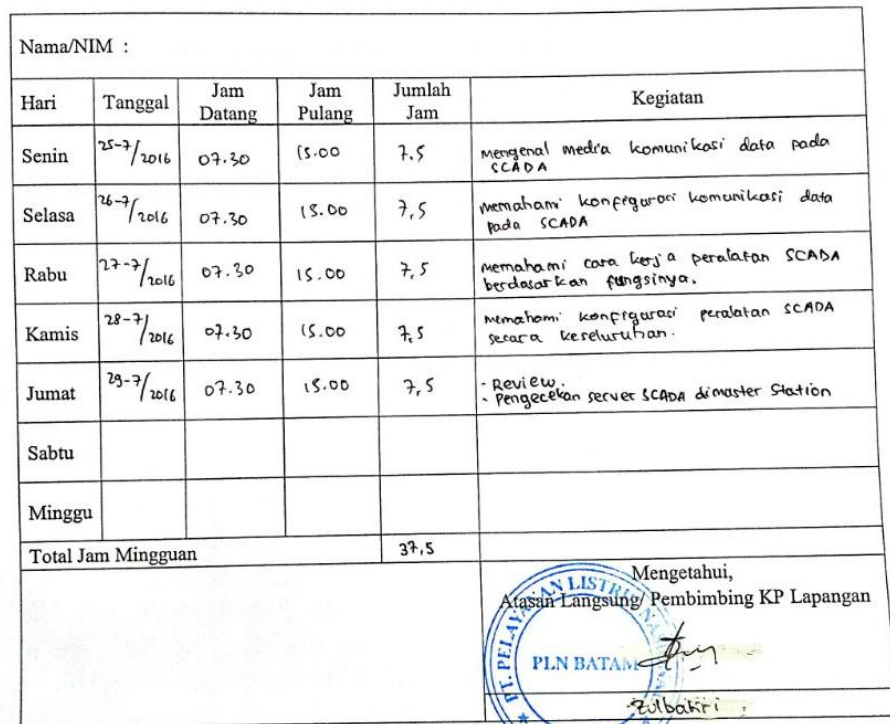 Nama/NIM :
Hari Tanggal Jam Datang Jam Pulang Jumlah Jam Kegiatan
Senin 25-7/2016 07.30 15.00 7.5 mengenal media komunikasi data pada
SCADA
Selasa 26-7/2016 07.30 15.00 7,5 memahami konfigurasi komunikasi data
pada SCADA
Rabu 27-7/2016 07.30 15.00 7,5 memahami cara kerja peralatan SCADA
berdasarkan fungsinya.
Kamis 28-7/2016 07.30 15.00 7,5 memahami konfigurasi peralatan SCADA
secara keseluruhan.
Jumat 29-7/2016 07.30 15.00 7,5 - Review.
- Pengecekan server SCADA dimaster Station
Sabtu
Minggu
Total Jam Mingguan 37,5
Mengetahui,
Atasan Langsung/ Pembimbing KP Lapangan
PT. PELAYANAN LISTRIK
PLN BATAM
Zulbakri